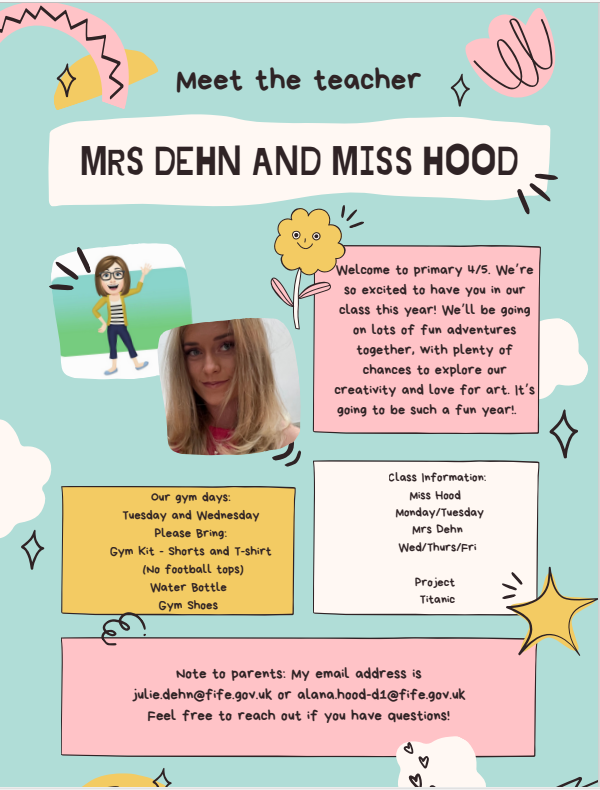 Meet the teacher
MRS DEHN AND MISS HOOD
Welcome to primary 4/5. We're
so excited to have you in our
class this year! We'll be going
on lots of fun adventures
together, with plenty of
chances to explore our
creativity and love for art. It's
going to be such a fun year!.
Our gym days:
Tuesday and Wednesday
Please Bring:
Gym Kit - Shorts and T-shirt
(No football tops)
Water Bottle
Gym Shoes
Class Information:
Miss Hood
Monday/Tuesday
Mrs Dehn
Wed/Thurs/Fri
Project
Titanic
Note to parents: My email address is
julie.dehn@fife.gov.uk or alana.hood-d1@fife.gov.uk
Feel free to reach out if you have questions!